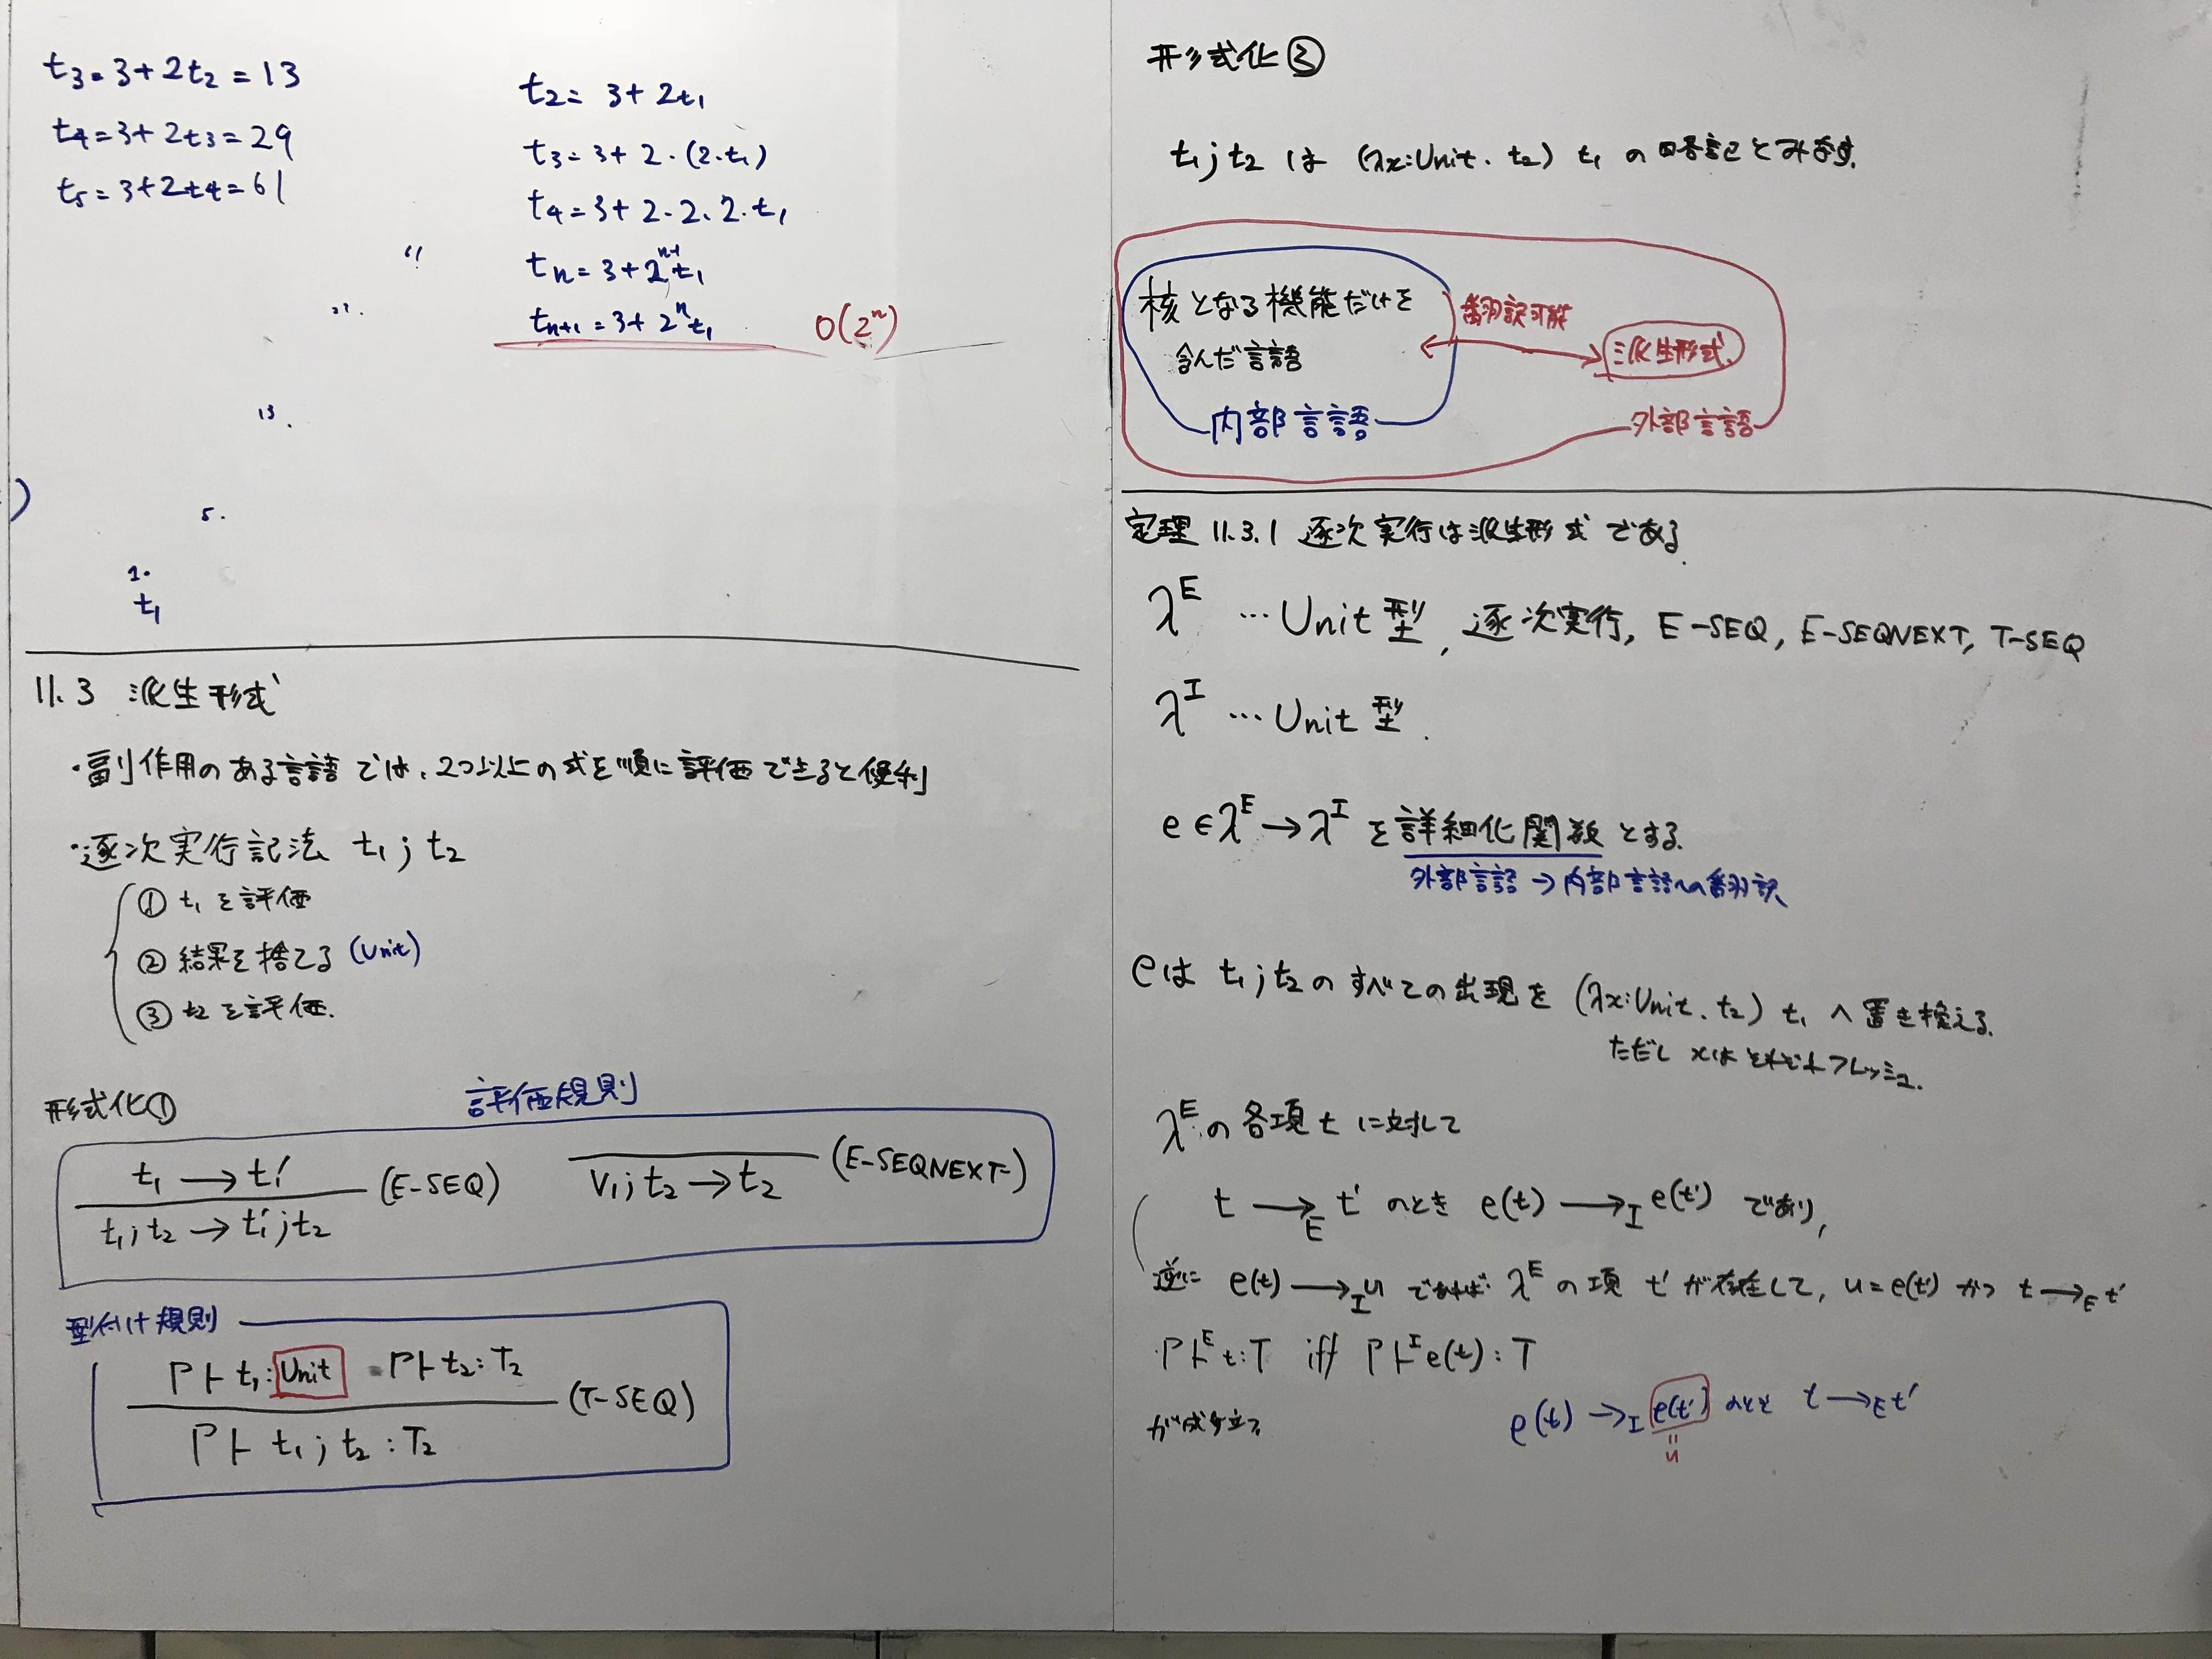 t₃ = 3 + 2t₂ = 13
t₄ = 3 + 2t₃ = 29
t₅ = 3 + 2t₄ = 61
t₂ = 3 + 2t₁
t₃ = 3 + 2・(2・t₁)
t₄ = 3 + 2・2・2・t₁
tₙ = 3 + 2ⁿ⁻¹t₁
tₙ₊₁ = 3 + 2ⁿt₁ O(2ⁿ)
13.
5.
1.
t₁
11.3 派生形式
・副作用のある言語では、2つ以上の式を順に評価できると便利
・逐次実行記法 t₁ ; t₂
① t₁を評価
② 結果を捨てる (Unit)
③ t₂を評価.
形式化①
評価規則
t₁ → t₁′
t₁; t₂ → t₁′; t₂ (E-SEQ)
v₁; t₂ → t₂ (E-SEQNEXT)
型付け規則
Γ ⊢ t₁: Unit Γ ⊢ t₂: T₂
Γ ⊢ t₁ ; t₂ : T₂ (T-SEQ)
形式化②
t₁; t₂ は (λx:Unit. t₂) t₁ の略記とみなす.
核となる機能だけを
含んだ言語
内部言語
翻訳可能
派生形式
外部言語
定理 11.3.1 逐次実行は派生形式である
λᴱ … Unit型, 逐次実行, E-SEQ, E-SEQNEXT, T-SEQ
λᴵ … Unit型.
e ∈ λᴱ → λᴵ を詳細化関数とする.
外部言語 → 内部言語への翻訳
eは t₁; t₂のすべての出現を (λx:Unit. t₂) t₁ へ置き換える.
ただし xはそれぞれフレッシュ.
λᴱの各項 t に対して
t →E t′ のとき e(t) →I e(t′) であり,
逆に e(t) →I u であれば λᴱ の項 t′ が存在して, u = e(t′) かつ t →E t′
Γ ⊢ᴱ t:T iff Γ ⊢ᴵ e(t) : T
が成り立つ
e(t) →I e(t′) のとき t →E t′
=
u